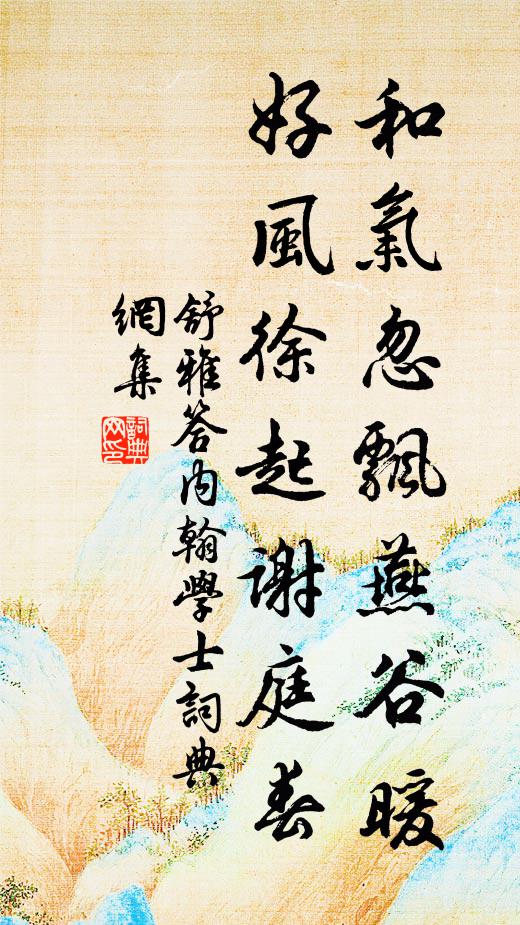 和氣忽飄燕谷暖
好風徐起謝庭春
舒雅答内翰學士詞典
網集
詞典
网印